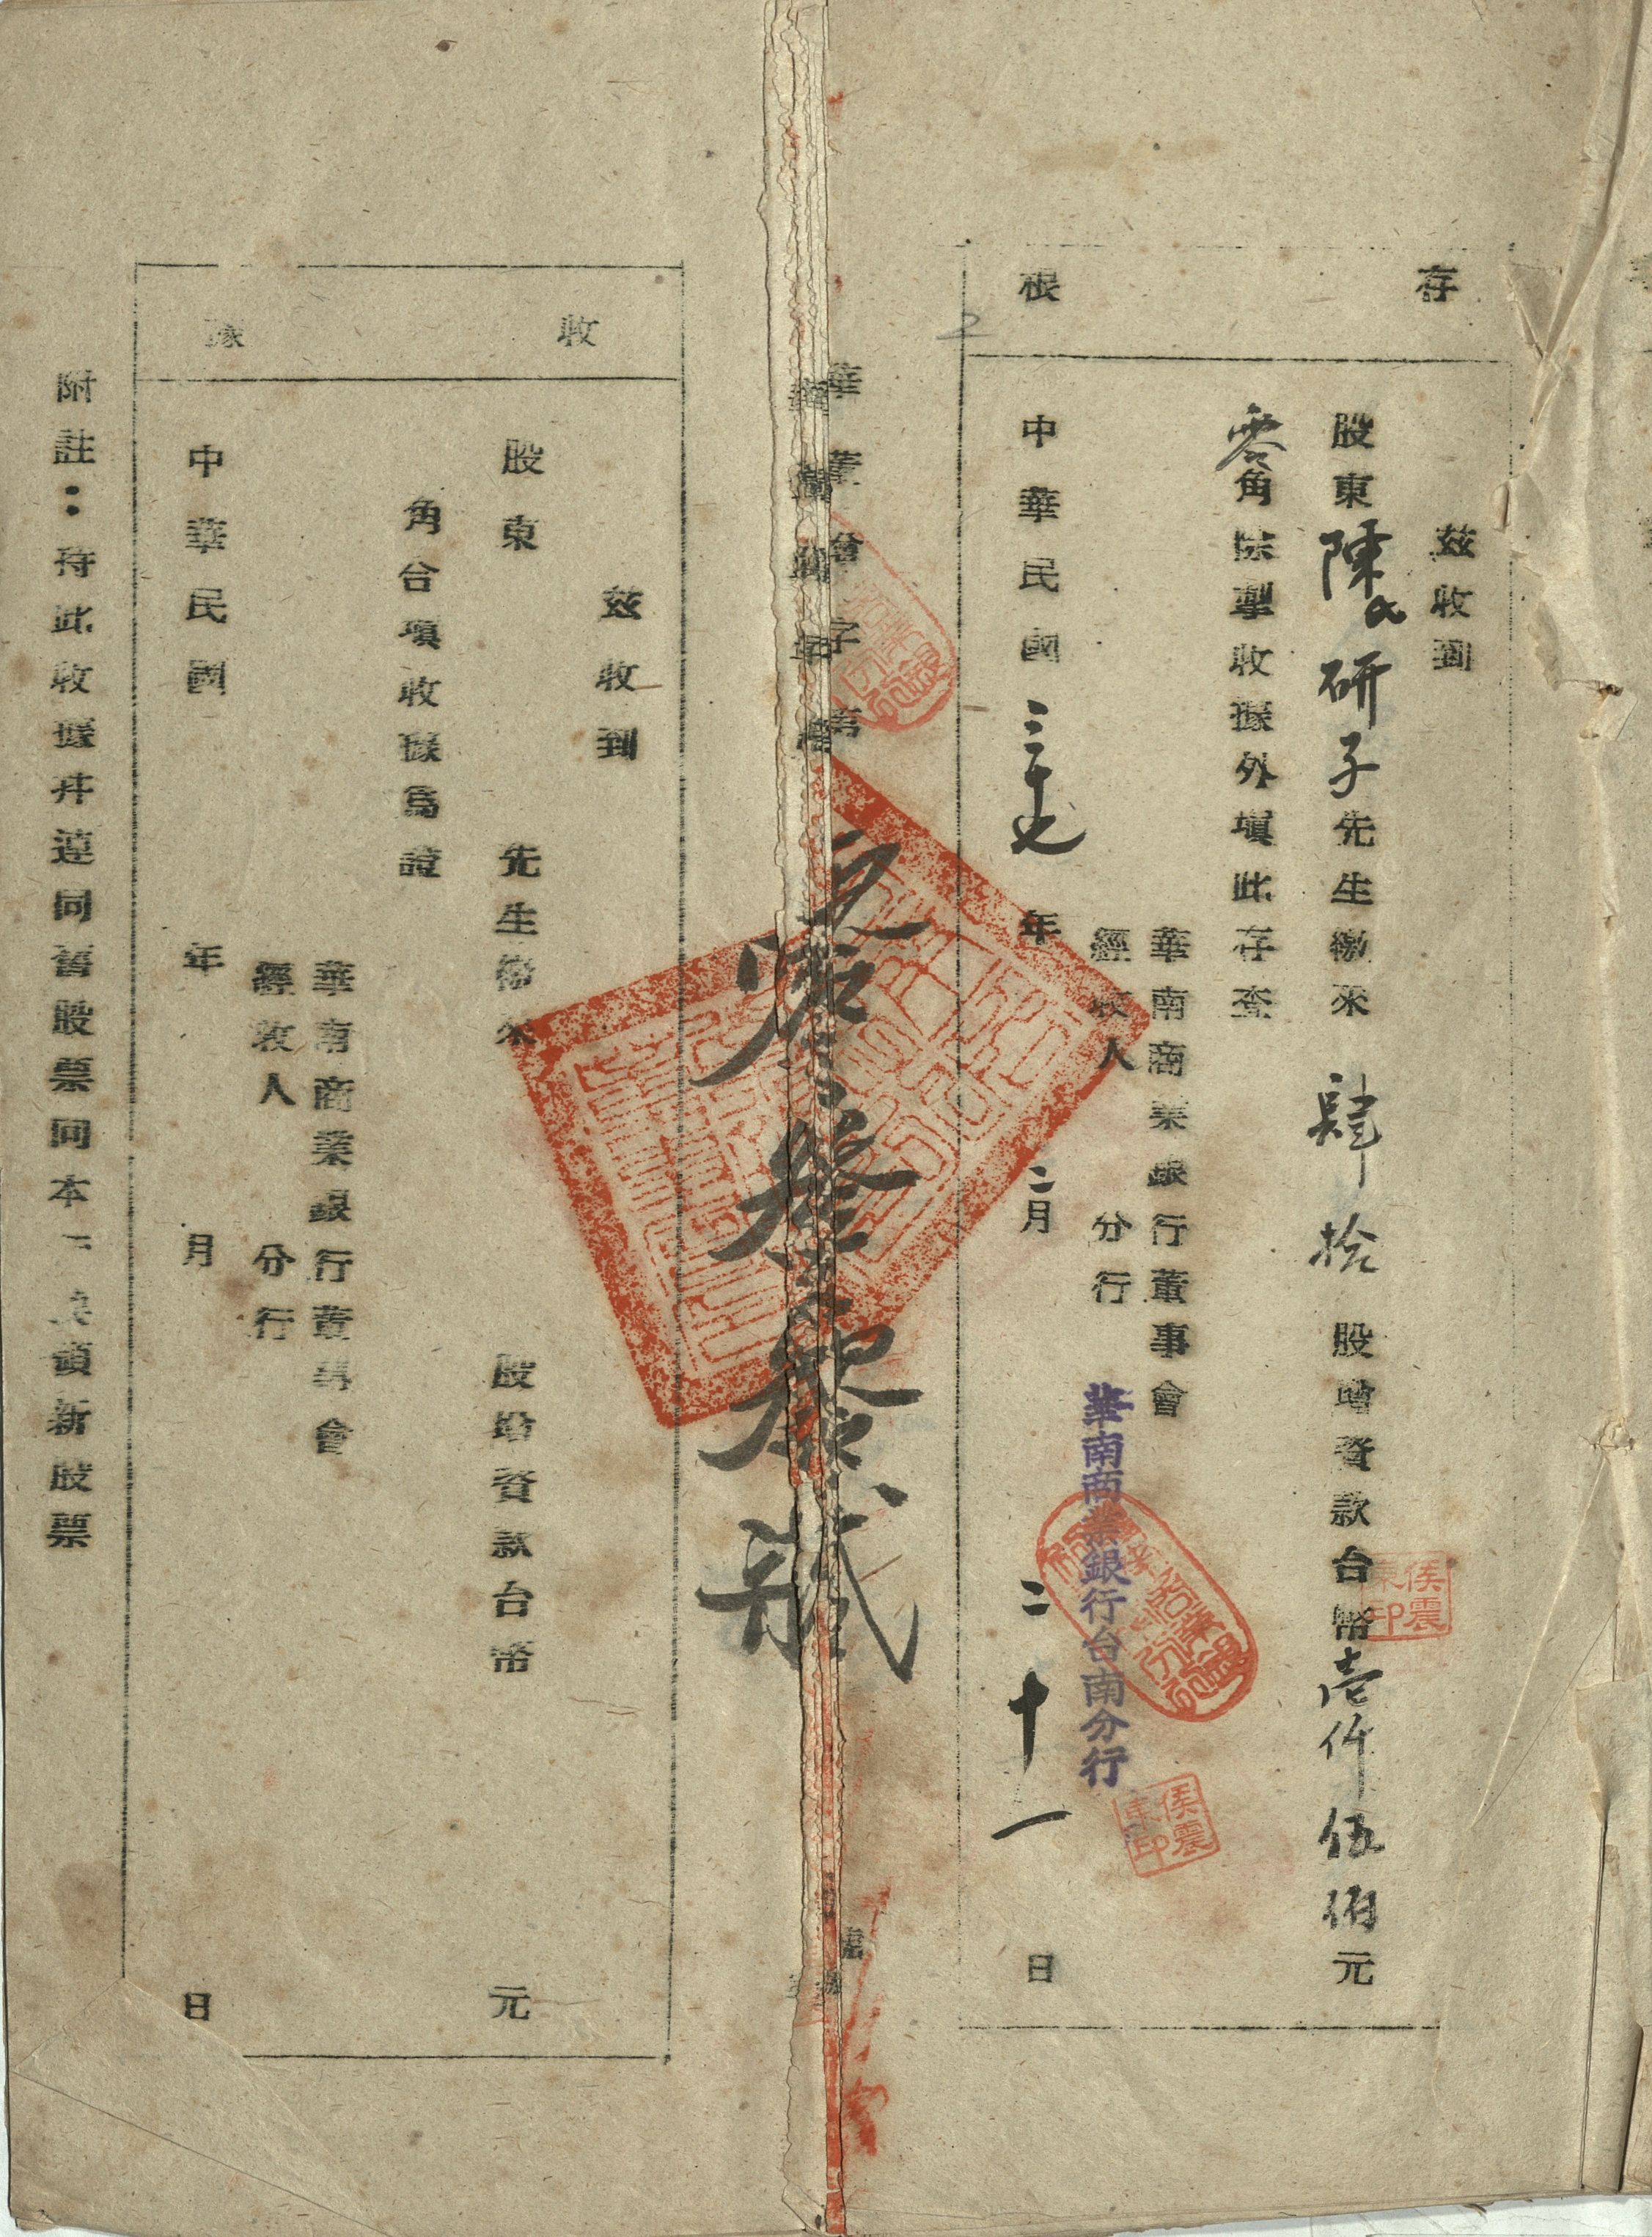 存根
茲收到
股東陳研子先生繳來肆拾股增資款台幣壹仟伍佰元
零角除掣收據外填此存查
華南商業銀行董事會
經收人 分行
華南商業銀行台南分行
中華民國三十七年二月二十一日
侯震東印
侯震東印
華董會字第 號
收據
茲收到
股東 先生繳來 股增資款台幣 元
角合填收據為證
華南商業銀行董事會
經收人 分行
中華民國 年 月 日
附註：持此收據并連同舊股票向本 領新股票